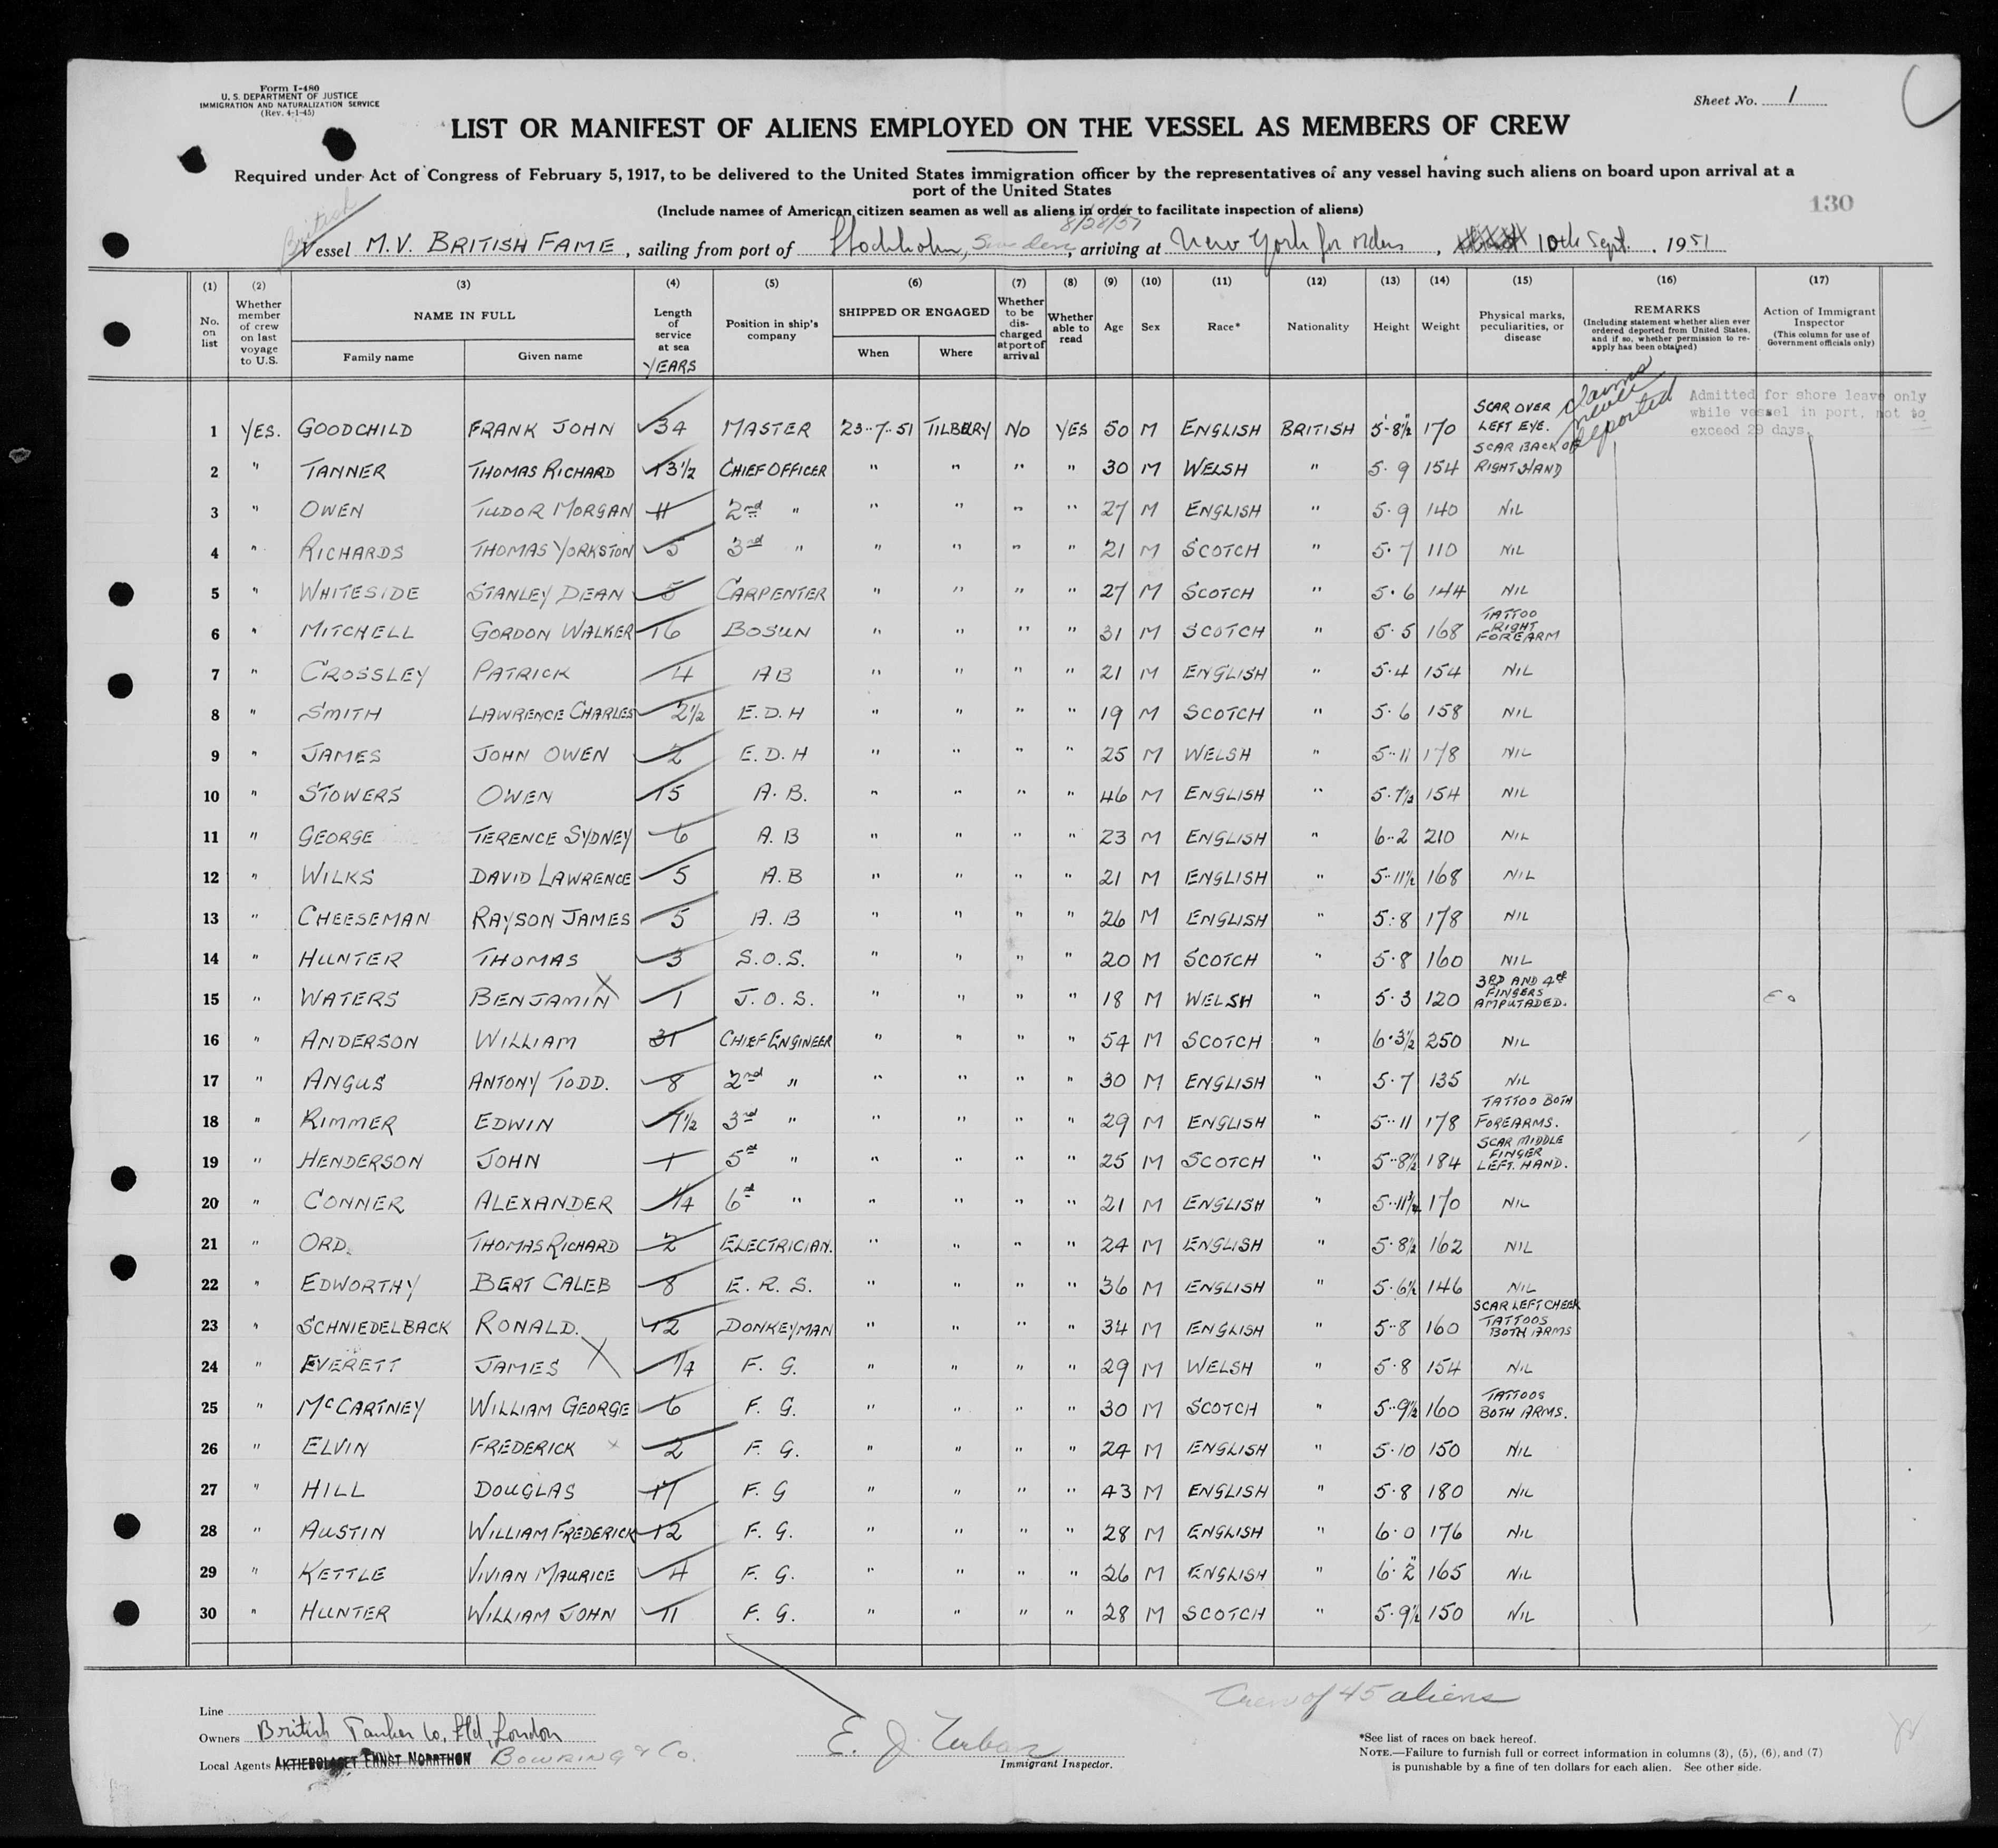 Form I-480
U. S. DEPARTMENT OF JUSTICE
IMMIGRATION AND NATURALIZATION SERVICE
(Rev. 4-1-45)
Sheet No. 1
LIST OR MANIFEST OF ALIENS EMPLOYED ON THE VESSEL AS MEMBERS OF CREW
Required under Act of Congress of February 5, 1917, to be delivered to the United States immigration officer by the representatives of any vessel having such aliens on board upon arrival at a
port of the United States
(Include names of American citizen seamen as well as aliens in order to facilitate inspection of aliens)
130
British
8/28/51
Vessel M.V. BRITISH FAME, sailing from port of Stockholm, Sweden, arriving at New York for orders, 10th Sept. 1951
(1) (2) (3) (4) (5) (6) (7) (8) (9) (10) (11) (12) (13) (14) (15) (16) (17)
No. on list
Whether member of crew on last voyage to U.S.
NAME IN FULL
Family name Given name
Length of service at sea
YEARS
Position in ship's company
SHIPPED OR ENGAGED
When Where
Whether to be discharged at port of arrival
Whether able to read
Age Sex Race* Nationality Height Weight
Physical marks, peculiarities, or disease
REMARKS
(Including statement whether alien ever ordered deported from United States, and if so, whether permission to reapply has been obtained)
Action of Immigrant Inspector
(This column for use of Government officials only)
claims never deported
Admitted for shore leave only
while vessel in port, not to
exceed 29 days.
1 YES. GOODCHILD FRANK JOHN 34 MASTER 23-7-51 TILBURY NO YES 50 M ENGLISH BRITISH 5-8½" 170 SCAR OVER LEFT EYE.
2 " TANNER THOMAS RICHARD 13½ CHIEF OFFICER " " " " 30 M WELSH " 5.9 154 SCAR BACK OF RIGHT HAND
3 " OWEN TUDOR MORGAN 11 2nd " " " " " 27 M ENGLISH " 5.9 140 NIL
4 " RICHARDS THOMAS YORKSTON 5 3rd " " " " " 21 M SCOTCH " 5.7 110 NIL
5 " WHITESIDE STANLEY DEAN 5 CARPENTER " " " " 27 M SCOTCH " 5.6 144 NIL
6 " MITCHELL GORDON WALKER 16 BOSUN " " " " 31 M SCOTCH " 5.5 168 TATTOO RIGHT FOREARM
7 " CROSSLEY PATRICK 4 AB " " " " 21 M ENGLISH " 5.4 154 NIL
8 " SMITH LAWRENCE CHARLES 2½ E.D.H " " " " 19 M SCOTCH " 5.6 158 NIL
9 " JAMES JOHN OWEN 2 E.D.H " " " " 25 M WELSH " 5-11 178 NIL
10 " STOWERS OWEN 15 A.B. " " " " 46 M ENGLISH " 5.7½ 154 NIL
11 " GEORGE TERENCE SYDNEY 6 A.B " " " " 23 M ENGLISH " 6-2 210 NIL
12 " WILKS DAVID LAWRENCE 5 A.B " " " " 21 M ENGLISH " 5-11½ 168 NIL
13 " CHEESEMAN RAYSON JAMES 5 A.B " " " " 26 M ENGLISH " 5.8 178 NIL
14 " HUNTER THOMAS 3 S.O.S. " " " " 20 M SCOTCH " 5.8 160 NIL
15 " WATERS BENJAMIN X 1 J.O.S. " " " " 18 M WELSH " 5.3 120 3RD AND 4th FINGERS AMPUTADED.
16 " ANDERSON WILLIAM 31 CHIEF ENGINEER " " " " 54 M SCOTCH " 6.3½ 250 NIL
17 " ANGUS ANTONY TODD. 8 2nd " " " " " 30 M ENGLISH " 5.7 135 NIL
18 " RIMMER EDWIN 7½ 3rd " " " " " 29 M ENGLISH " 5-11 178 TATTOO BOTH FOREARMS.
19 " HENDERSON JOHN 1 5th " " " " " 25 M SCOTCH " 5-8½ 184 SCAR MIDDLE FINGER LEFT. HAND.
20 " CONNER ALEXANDER 1/4 6th " " " " " 21 M ENGLISH " 5-11¾ 170 NIL
21 " ORD. THOMAS RICHARD 2 ELECTRICIAN. " " " " 24 M ENGLISH " 5.8½ 162 NIL
22 " EDWORTHY BERT CALEB 8 E.R.S. " " " " 36 M ENGLISH " 5.6½ 146 NIL
23 " SCHNIEDELBACK RONALD. 12 DONKEYMAN " " " " 34 M ENGLISH " 5-8 160 SCAR LEFT CHEEK TATTOOS BOTH ARMS
24 " EVERETT JAMES X 1/4 F. G. " " " " 29 M WELSH " 5.8 154 NIL
25 " McCARTNEY WILLIAM GEORGE 6 F. G. " " " " 30 M SCOTCH " 5-9½ 160 TATTOOS BOTH ARMS.
26 " ELVIN FREDERICK x 2 F. G. " " " " 24 M ENGLISH " 5.10 150 NIL
27 " HILL DOUGLAS 17 F. G " " " " 43 M ENGLISH " 5.8 180 NIL
28 " AUSTIN WILLIAM FREDERICK 12 F. G. " " " " 28 M ENGLISH " 6.0 176 NIL
29 " KETTLE VIVIAN MAURICE 4 F. G. " " " " 26 M ENGLISH " 6'.2" 165 NIL
30 " HUNTER WILLIAM JOHN 11 F. G. " " " " 28 M SCOTCH " 5.9½ 150 NIL
Crew of 45 aliens
Line
Owners British Tanker Co. Ltd, London
Local Agents AKTIEBOLAGET ERNST NORRTHON BOWRING & Co.
E. J.
Immigrant Inspector.
*See list of races on back hereof.
NOTE.—Failure to furnish full or correct information in columns (3), (5), (6), and (7)
is punishable by a fine of ten dollars for each alien. See other side.